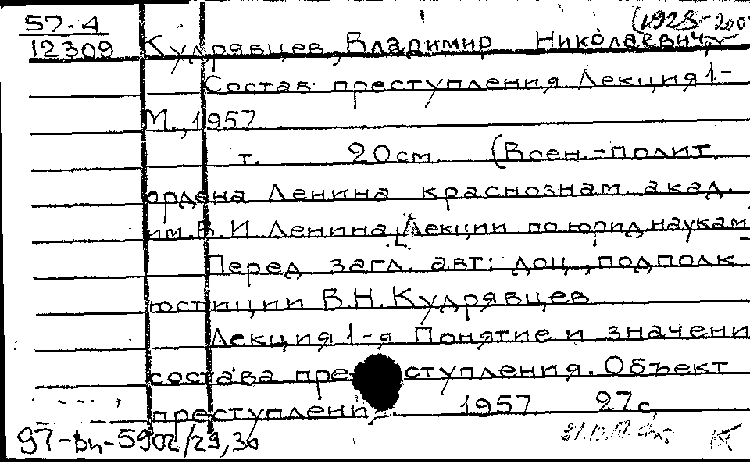 57-4
12309
(1923-200
Кудрявцев, Владимир Николаевич
Состав преступления Лекция 1-
М., 1957
т. 20см. (Воен.-полит.
ордена Ленина краснознам. акад.
им. В.И. Ленина. Лекции по юрид. наукам
Перед загл. авт: доц., подполк
юстиции В.Н. Кудрявцев
Лекция 1-я Понятие и значени
состава преступления. Объект
преступлени. 1957 27с.
97-Вч-5902/29,30